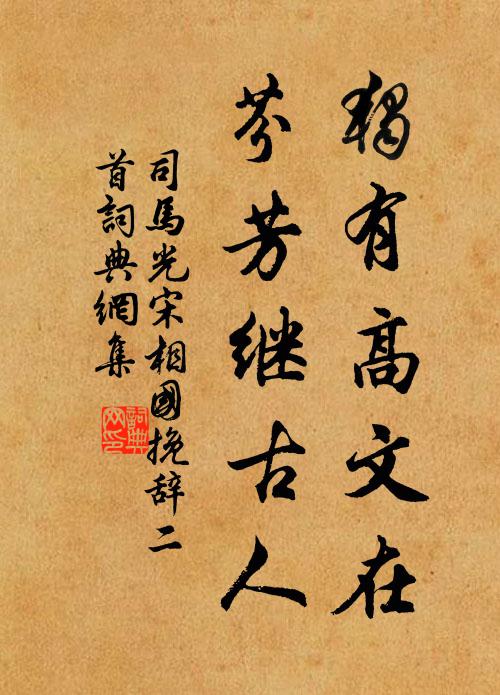 獨有高文在
芬芳继古人
司馬光宋相國挽辞二
首詞典網集
詞典
网印